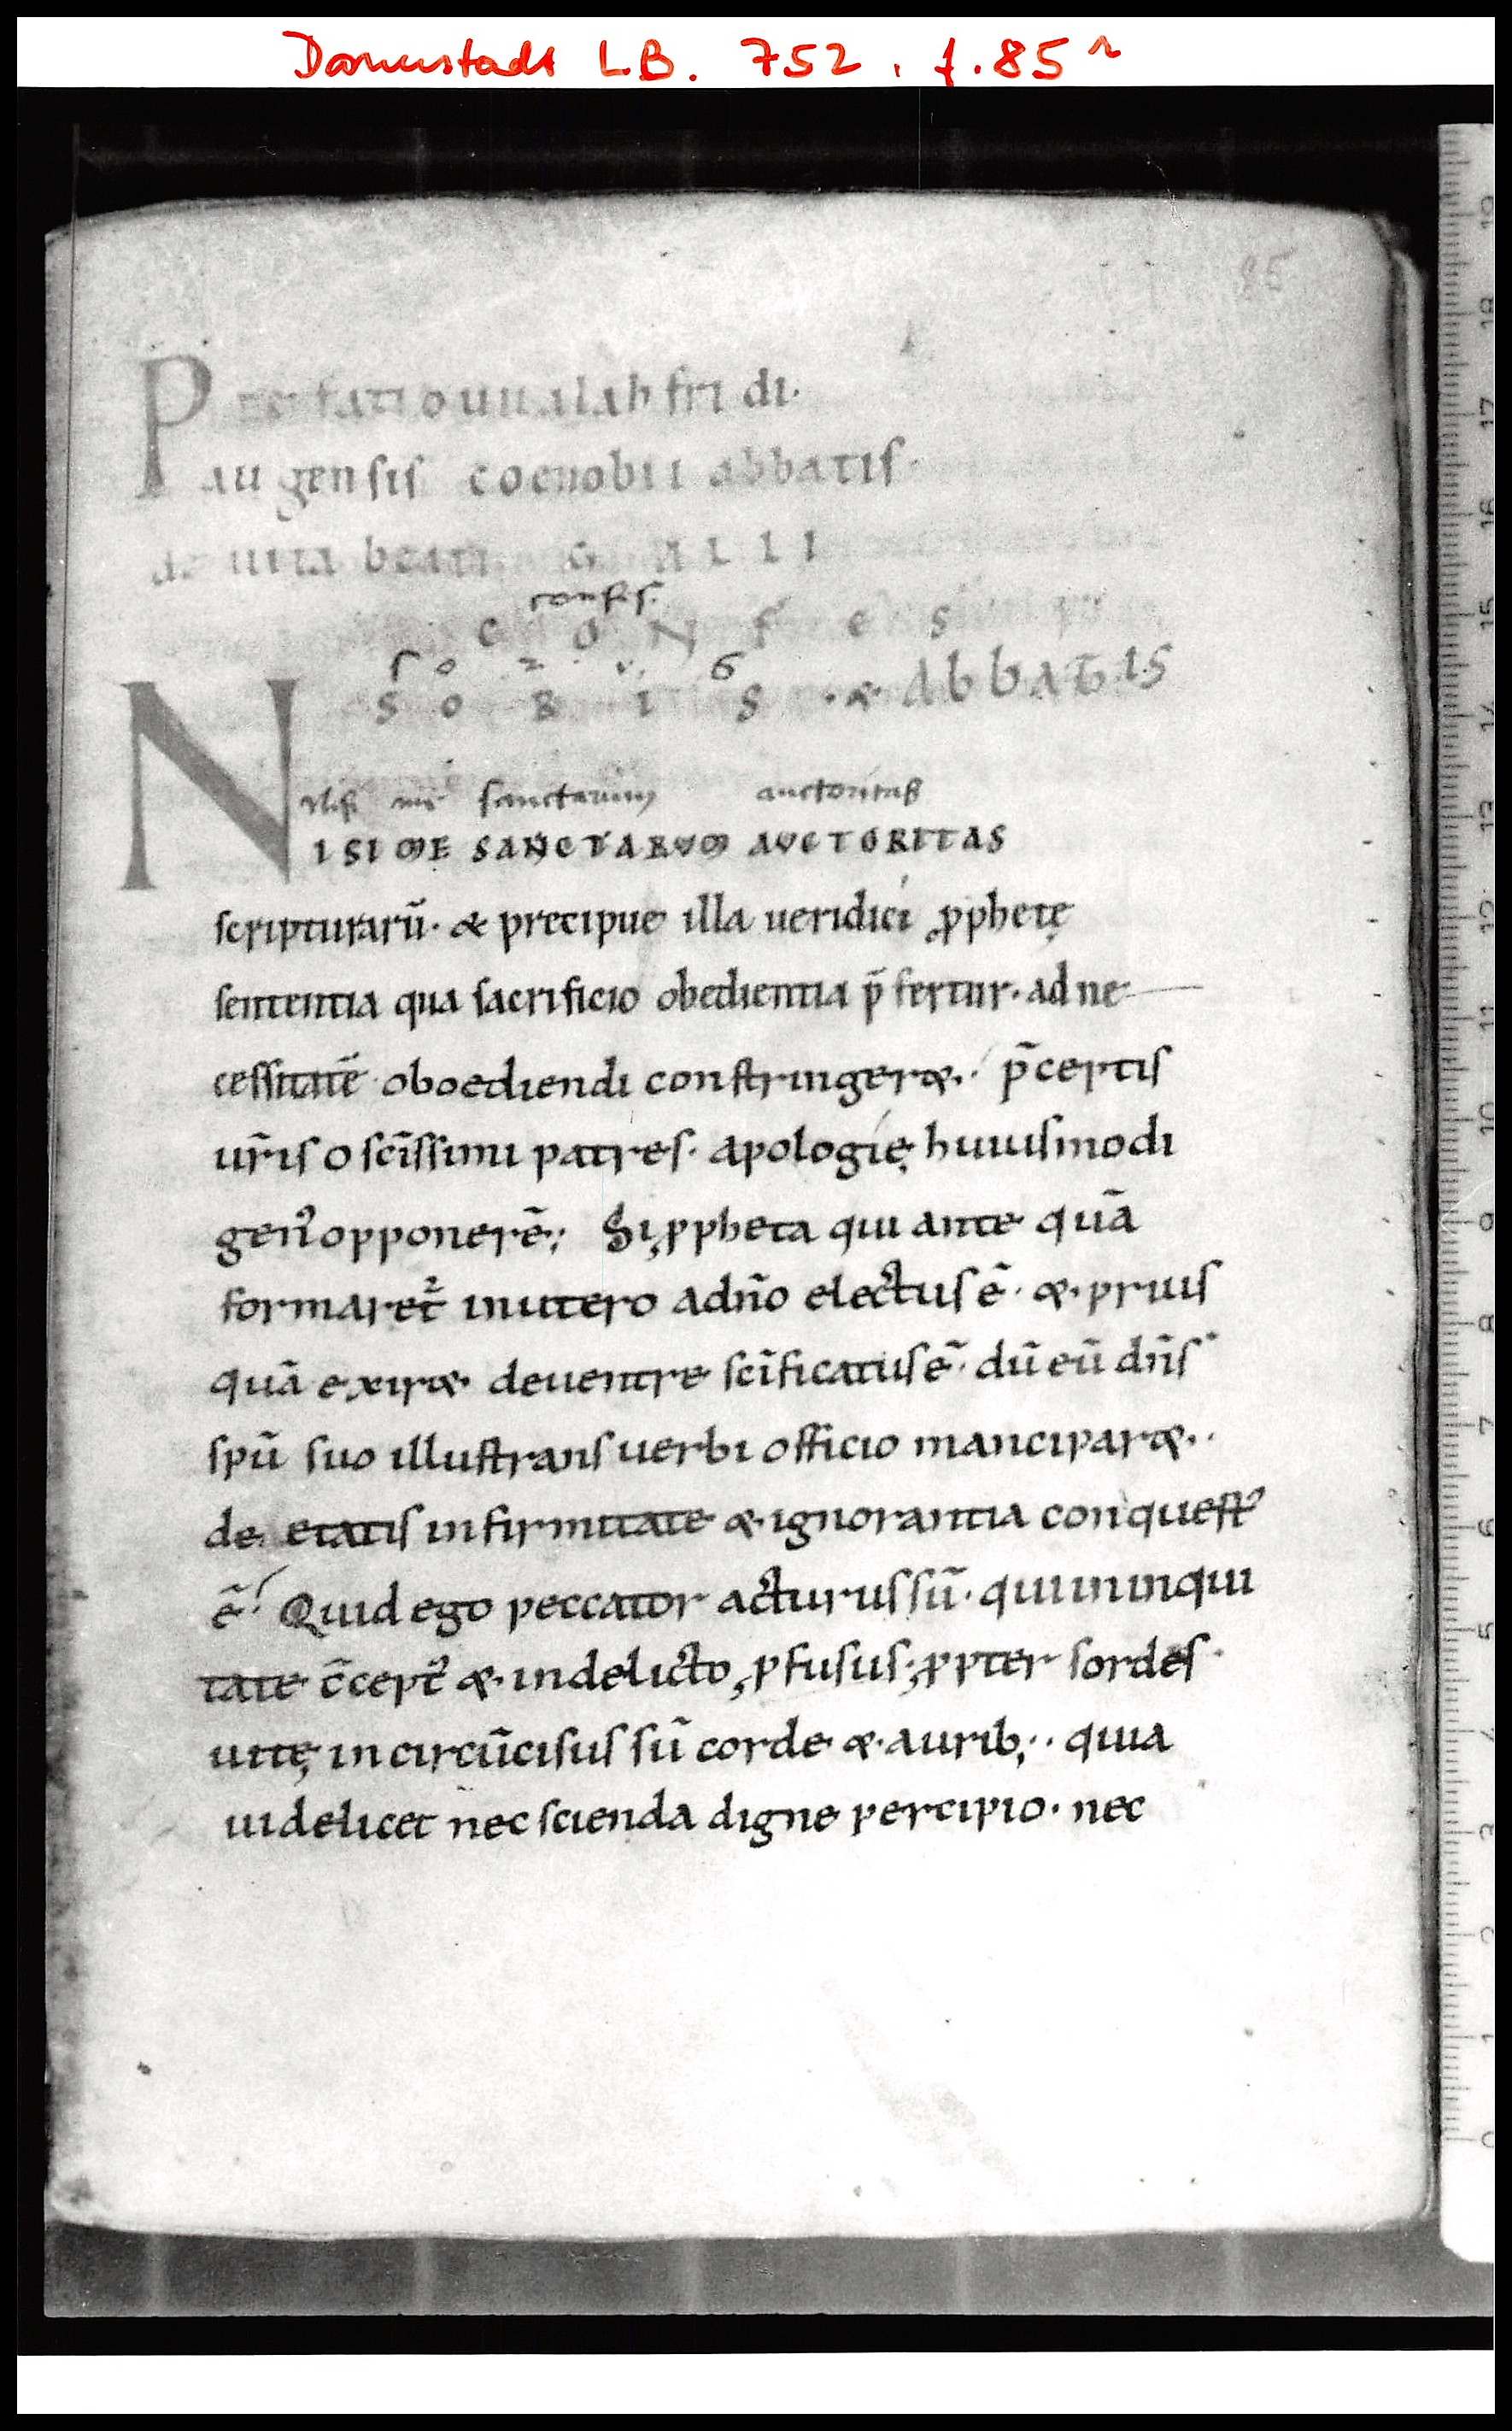 Darmstadt L.B. 752, f. 85r
85
Praefatio uualahfridi·
augensis coenobii abbatis·
de uita beati GALLI
confes.
CONFES
soris
SORIS · & Abbatis
Nisi me sanctarum auctoritas
NISI ME SANCTARUM AUCTORITAS
scripturarū· & precipue illa ueridici ꝓphetę
sententia qua sacrificio obedientia p̄fertur· ad ne
cessitatē oboediendi constringeret· p̄certis
ur̄is o sc̄issimi patres· apologię huiusmodi
genꝰ opponerē; Si ꝓpheta qui ante quā
formaret᷑ in utero a dn̄o electus ē· &· prius
quā exiret de uentre sc̄ificatus ē· dū eū dn̄s
spū suo illustrans uerbi officio manciparet·
de etatis infirmitate & ignorantia conquestꝰ
ē· Quid ego peccator acturus sū· qui in inqui
tate c̄ceptꝰ & in delicto ꝓfusus· ꝓpter sordes
uitę incircūcisus sū corde & aurib;· quia
uidelicet nec scienda digne percipio· nec